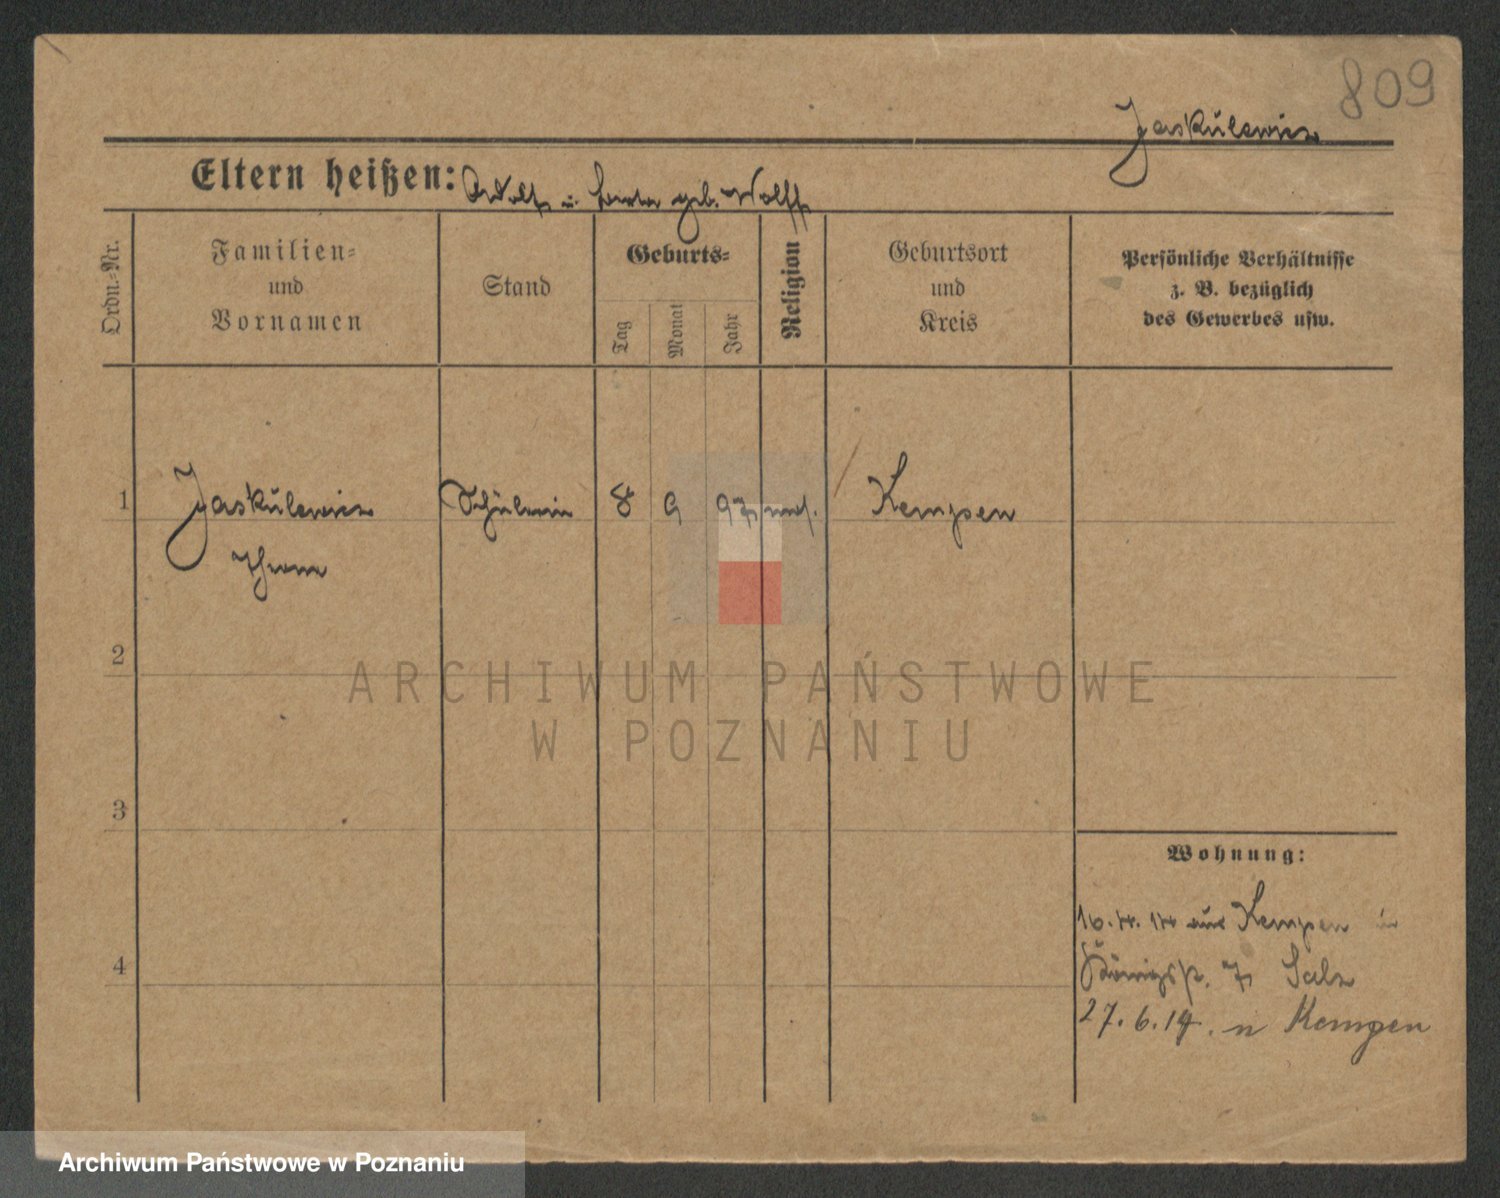 809
Jaskulewicz
Eltern heißen: Adolf u. geb. Wolff
Ordn.-Nr.
Familien- und Vornamen
Stand
Geburts-
Tag
Monat
Jahr
Religion
Geburtsort und Kreis
Persönliche Verhältnisse z. B. bezüglich des Gewerbes usw.
1 Jaskulewicz Schülerin 8 9 97 mos. Kempen
2
3
4
ARCHIWUM PAŃSTWOWE
W POZNANIU
Wohnung:
16. 4. 14 aus Kempen
Königspl. 7 Salz
27. 6. 14. n Kempen
Archiwum Państwowe w Poznaniu